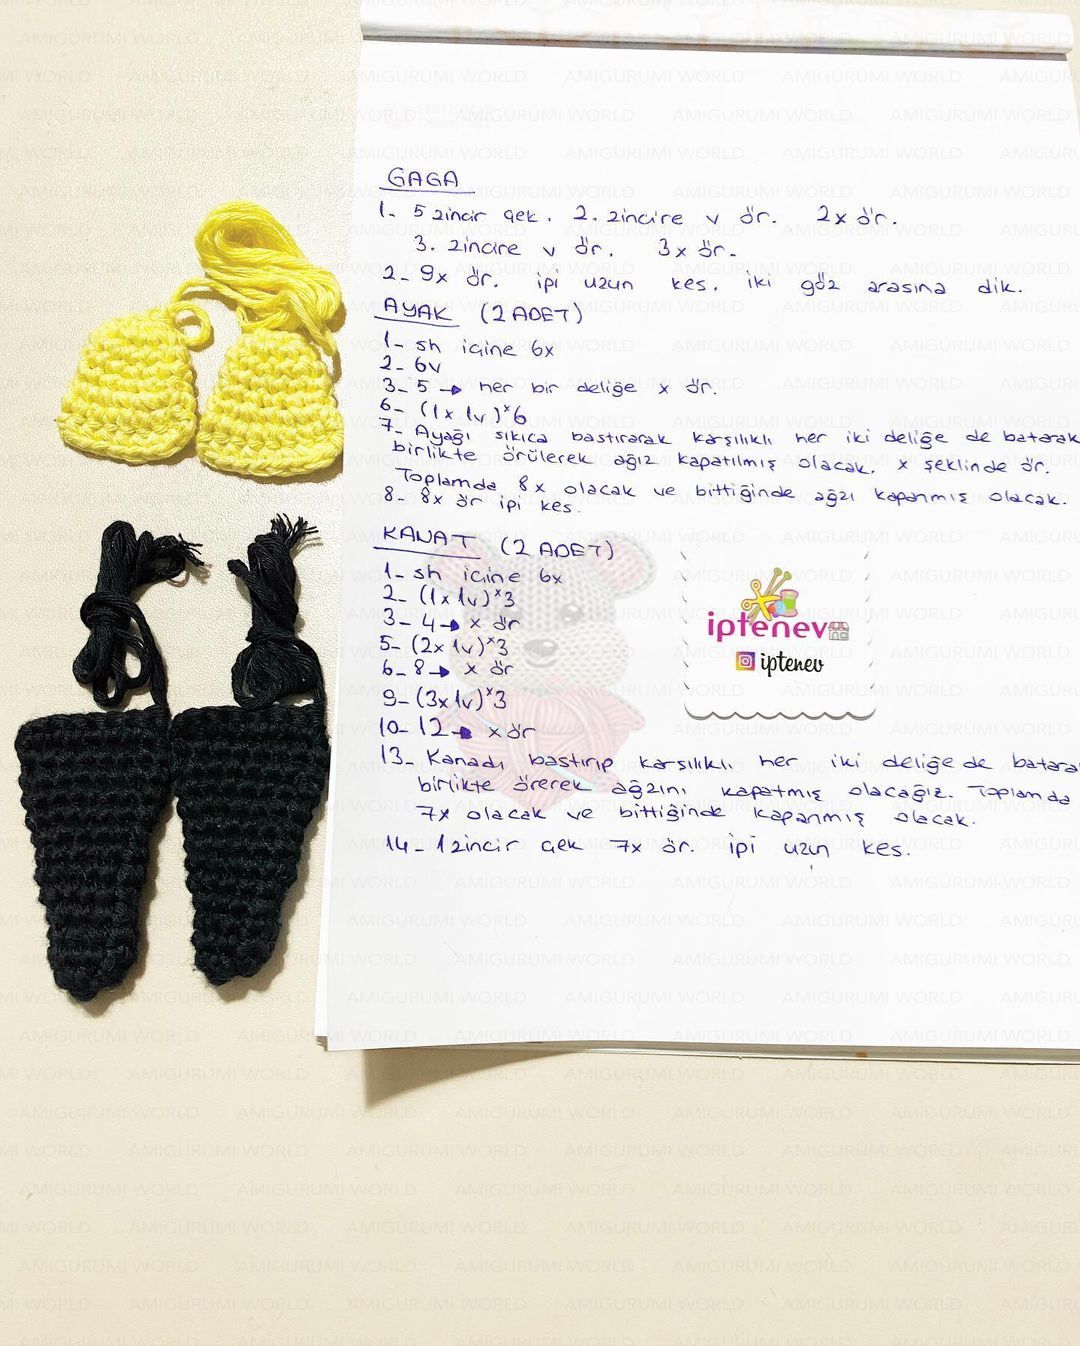 GAGA
1- 5 zincir çek. 2. zincire v ör. 2x ör.
3. zincire v ör. 3x ör.
2- 9x ör. ipi uzun kes. iki göz arasına dik.
AYAK (2 ADET)
1- sh içine 6x
2- 6v
3- 5 → her bir deliğe x ör.
6- (1x 1v)*6
7- Ayağı sıkıca bastırarak karşılıklı her iki deliğe de batarak
birlikte örülerek ağız kapatılmış olacak. x şeklinde ör.
Toplamda 8x olacak ve bittiğinde ağzı kapanmış olacak.
8- 8x ör ipi kes.
KANAT (2 ADET)
1- sh içine 6x
2- (1x 1v)*3
3- 4 → x ör
5- (2x 1v)*3
6- 8 → x ör
9- (3x 1v)*3
10- 12 → x ör
13- Kanadı bastırıp karşılıklı her iki deliğe de batara
birlikte örerek ağzını kapatmış olacağız. Toplamda
7x olacak ve bittiğinde kapanmış olacak.
14- 1 zincir çek 7x ör. ipi uzun kes.
iptenev
iptenev
AMIGURUMI WORLD